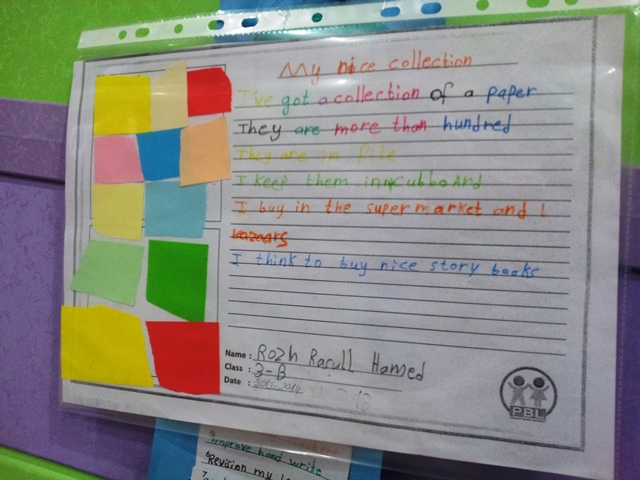 My nice collection
I've got a collection of a paper
They are more than hundred
They are in file
I keep them in my cubboard
I buy in the supermarket and I
bazaars
I think to buy nice story books
Name : Rozh Rasull Hamed
Class : 3-B
Date :
PBL
Improve hand write
Revision my